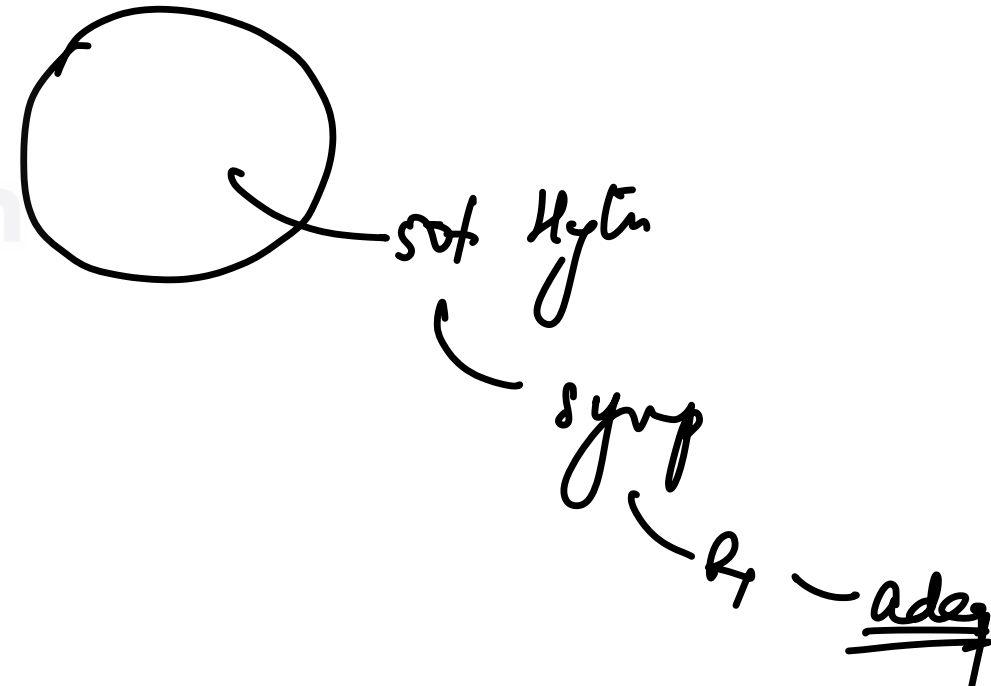 sot Hytn
symp
Rx
adeq